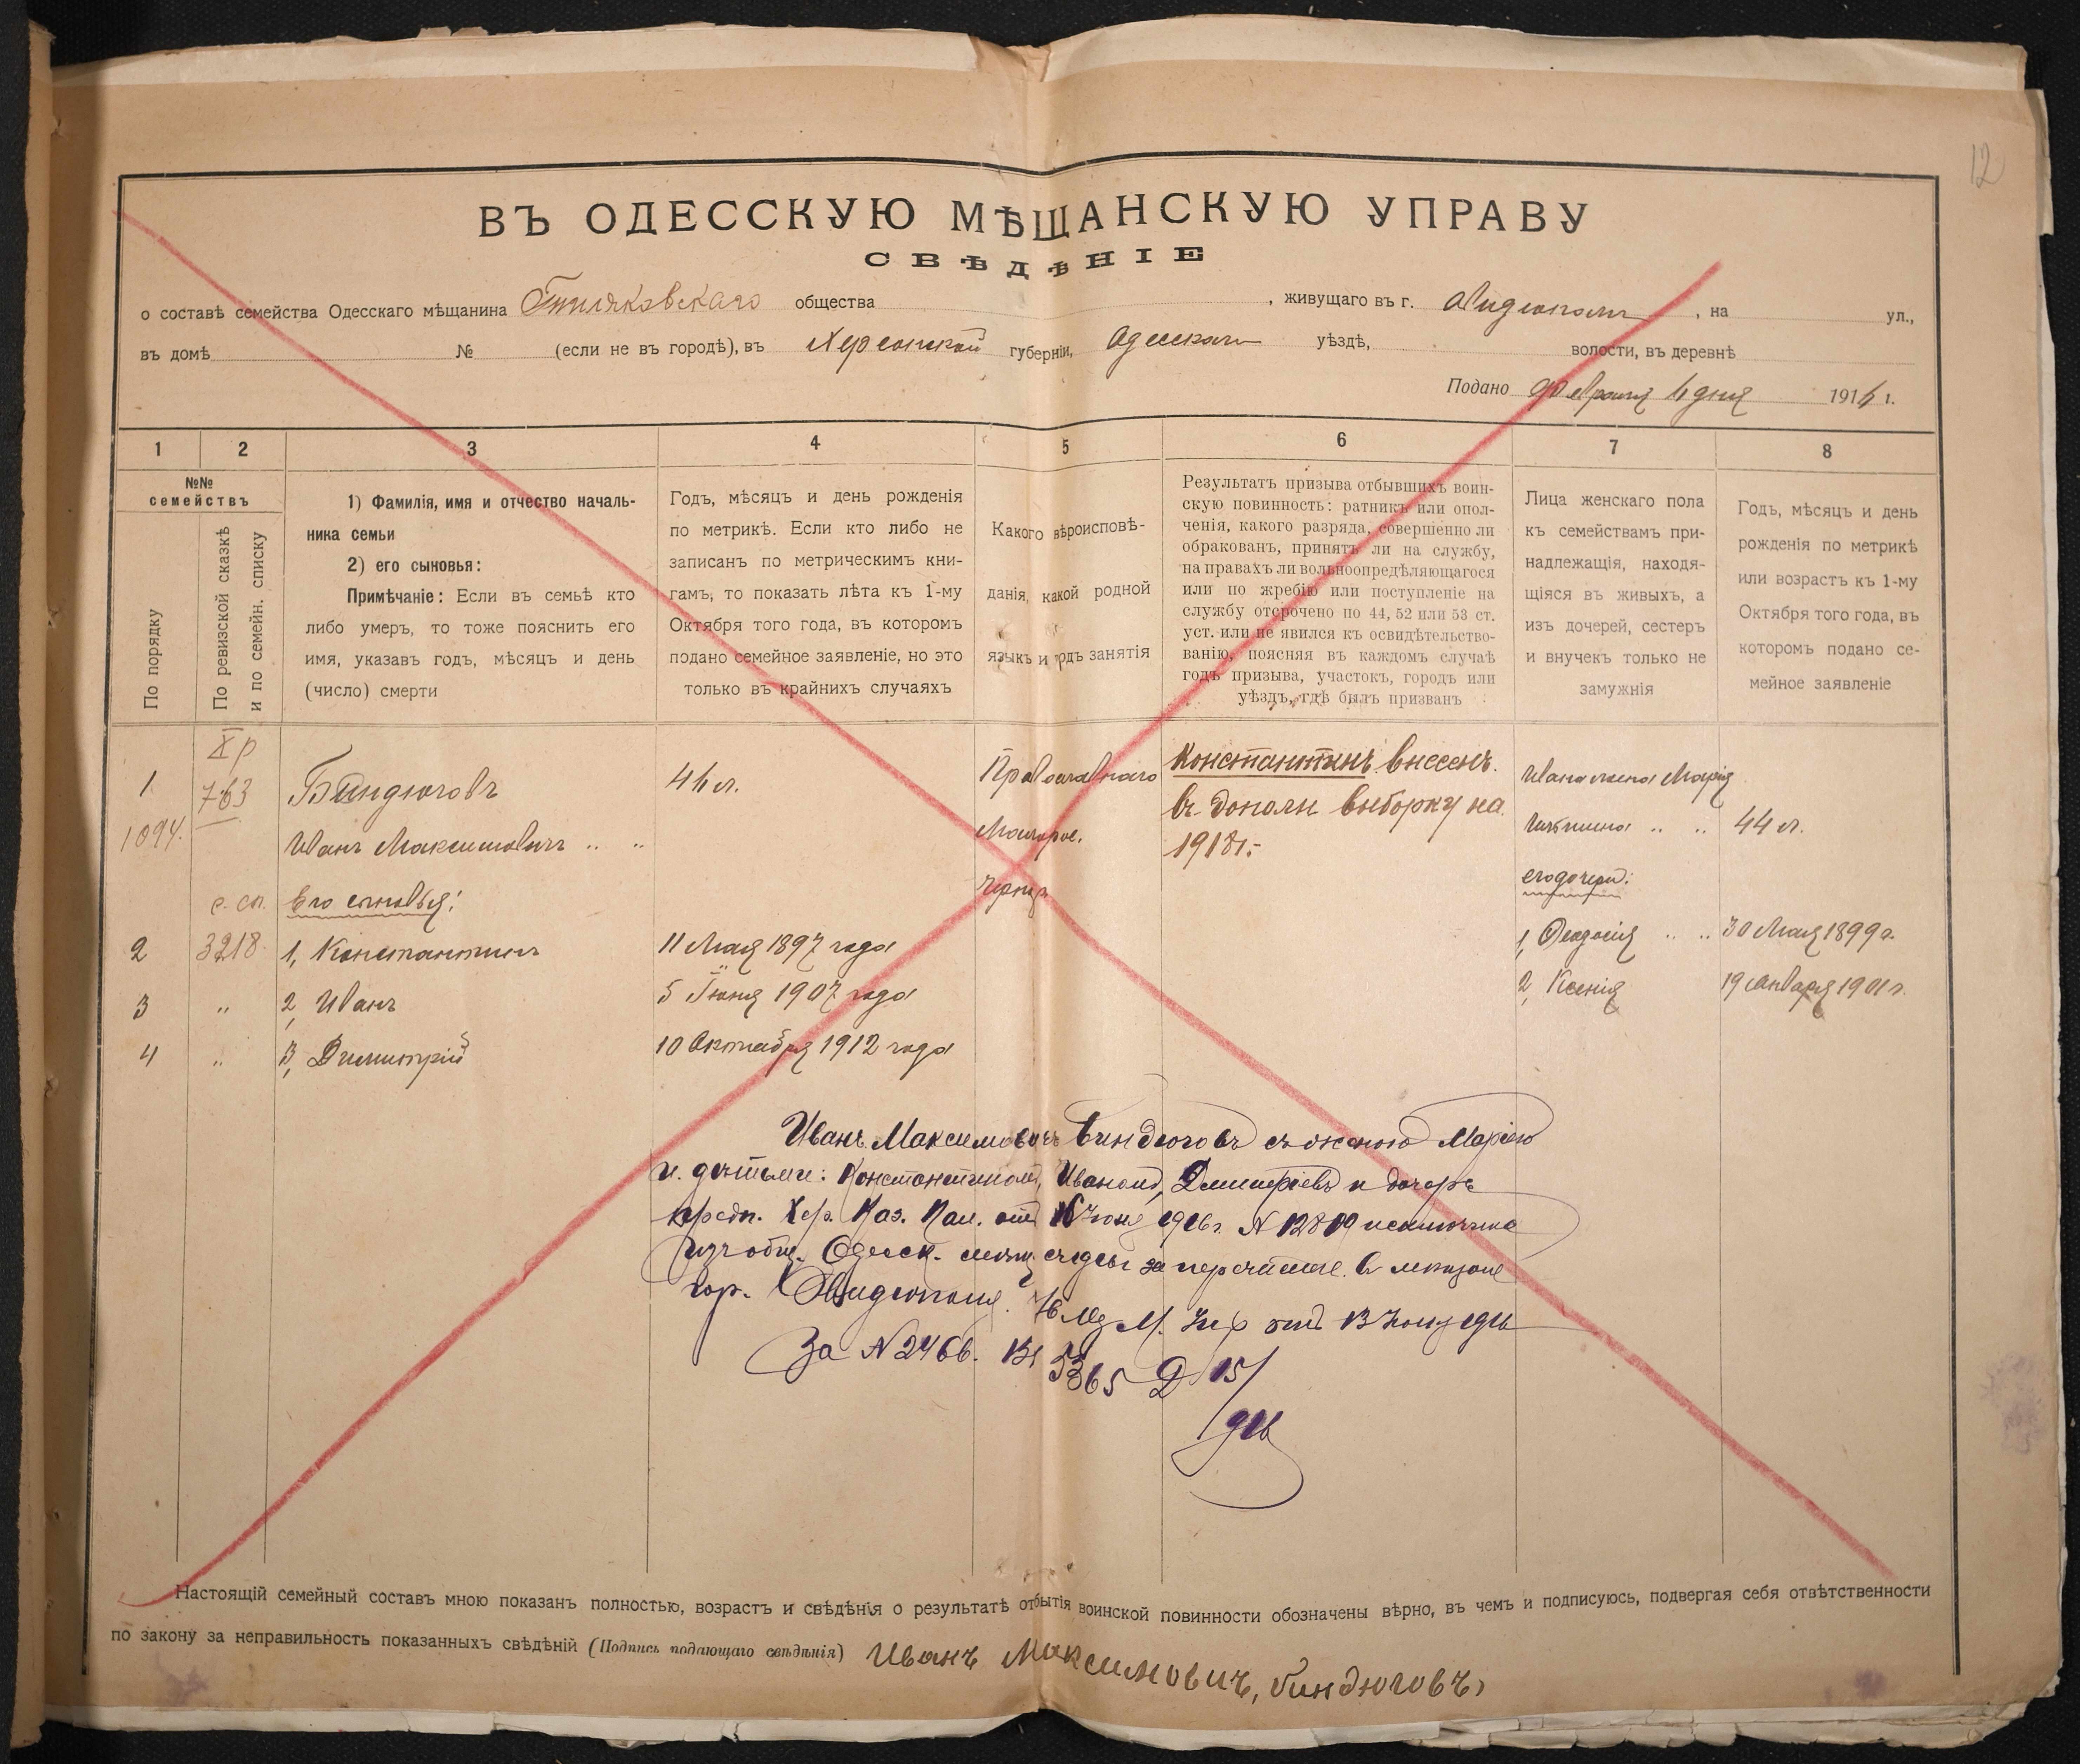 12
ВЪ ОДЕССКУЮ МѢЩАНСКУЮ УПРАВУ
СВѢДѢНІЕ
о составѣ семейства Одесскаго мѣщанина общества , живущаго въ г. Овидіополѣ , на ул.,
въ домѣ № (если не въ городѣ), въ Херсонской губерніи, Одесскомъ уѣздѣ, волости, въ деревнѣ
Подано Февраля дня 191 г.
1 2 3 4 5 6 7 8
№№ семействъ
По порядку
По ревизской сказкѣ и по семейн. списку
1) Фамилія, имя и отчество началь-
ника семьи
2) его сыновья:
Примѣчаніе: Если въ семьѣ кто
либо умеръ, то тоже пояснить его
имя, указавъ годъ, мѣсяцъ и день
(число) смерти
Годъ, мѣсяцъ и день рожденія
по метрикѣ. Если кто либо не
записанъ по метрическимъ кни-
гамъ, то показать лѣта къ 1-му
Октября того года, въ которомъ
подано семейное заявленіе, но это
только въ крайнихъ случаяхъ
Какого вѣроисповѣ-
данія, какой родной
языкъ и родъ занятія
Результатъ призыва отбывшихъ воин-
скую повинность: ратникъ или опол-
ченія, какого разряда, совершенно ли
обракованъ, принятъ ли на службу,
на правахъ ли вольноопредѣляющагося
или по жребію или поступленіе на
службу отсрочено по 44, 52 или 53 ст.
уст. или не явился къ освидѣтельство-
ванію, поясняя въ каждомъ случаѣ
годъ призыва, участокъ, городъ или
уѣздъ, гдѣ былъ призванъ
Лица женскаго пола
къ семействамъ при-
надлежащія, находя-
щіяся въ живыхъ, а
изъ дочерей, сестеръ
и внучекъ только не
замужнія
Годъ, мѣсяцъ и день
рожденія по метрикѣ
или возрастъ къ 1-му
Октября того года, въ
которомъ подано се-
мейное заявленіе
Хр
1 763 Биндюговъ Православнаго Константинъ внесенъ Ивана жена Марія
въ дополн выборку на
1094. Иванъ Максимовичъ .. .. Малорос. 1918г. .. .. 44 л.
с. сп. Его сыновья: его дочери:
2 3218 1, Константинъ 11 Мая 1897 года 1, Ѳеодосія .. .. 30 Мая 1899 г.
3 " 2, Иванъ 5 Іюня 1907 года 2, Ксенія 19 Января 1901 г.
4 " 3, Димитрій 10 Октября 1912 года
Иванъ Максимовичъ Биндюговъ съ женою Маріею
и дѣтьми: Константиномъ, Иваномъ, и дочерь
предп. Хер. Каз. Пал. отъ 6 Іюня 1916 г. N 12809
изъ общ. Одесск. мѣщ за перечисле. в мѣщане
гор. Овидіополя. М. отъ 13 Іюня 1916
За N 2466. Вх 5365 15/
916
Настоящій семейный составъ мною показанъ полностью, возрастъ и свѣдѣнія о результатѣ отбытія воинской повинности обозначены вѣрно, въ чемъ и подписуюсь, подвергая себя отвѣтственности
по закону за неправильность показанныхъ свѣдѣній (Подпись подающаго свѣдѣнія) Иванъ Максимовичъ, Биндюговъ